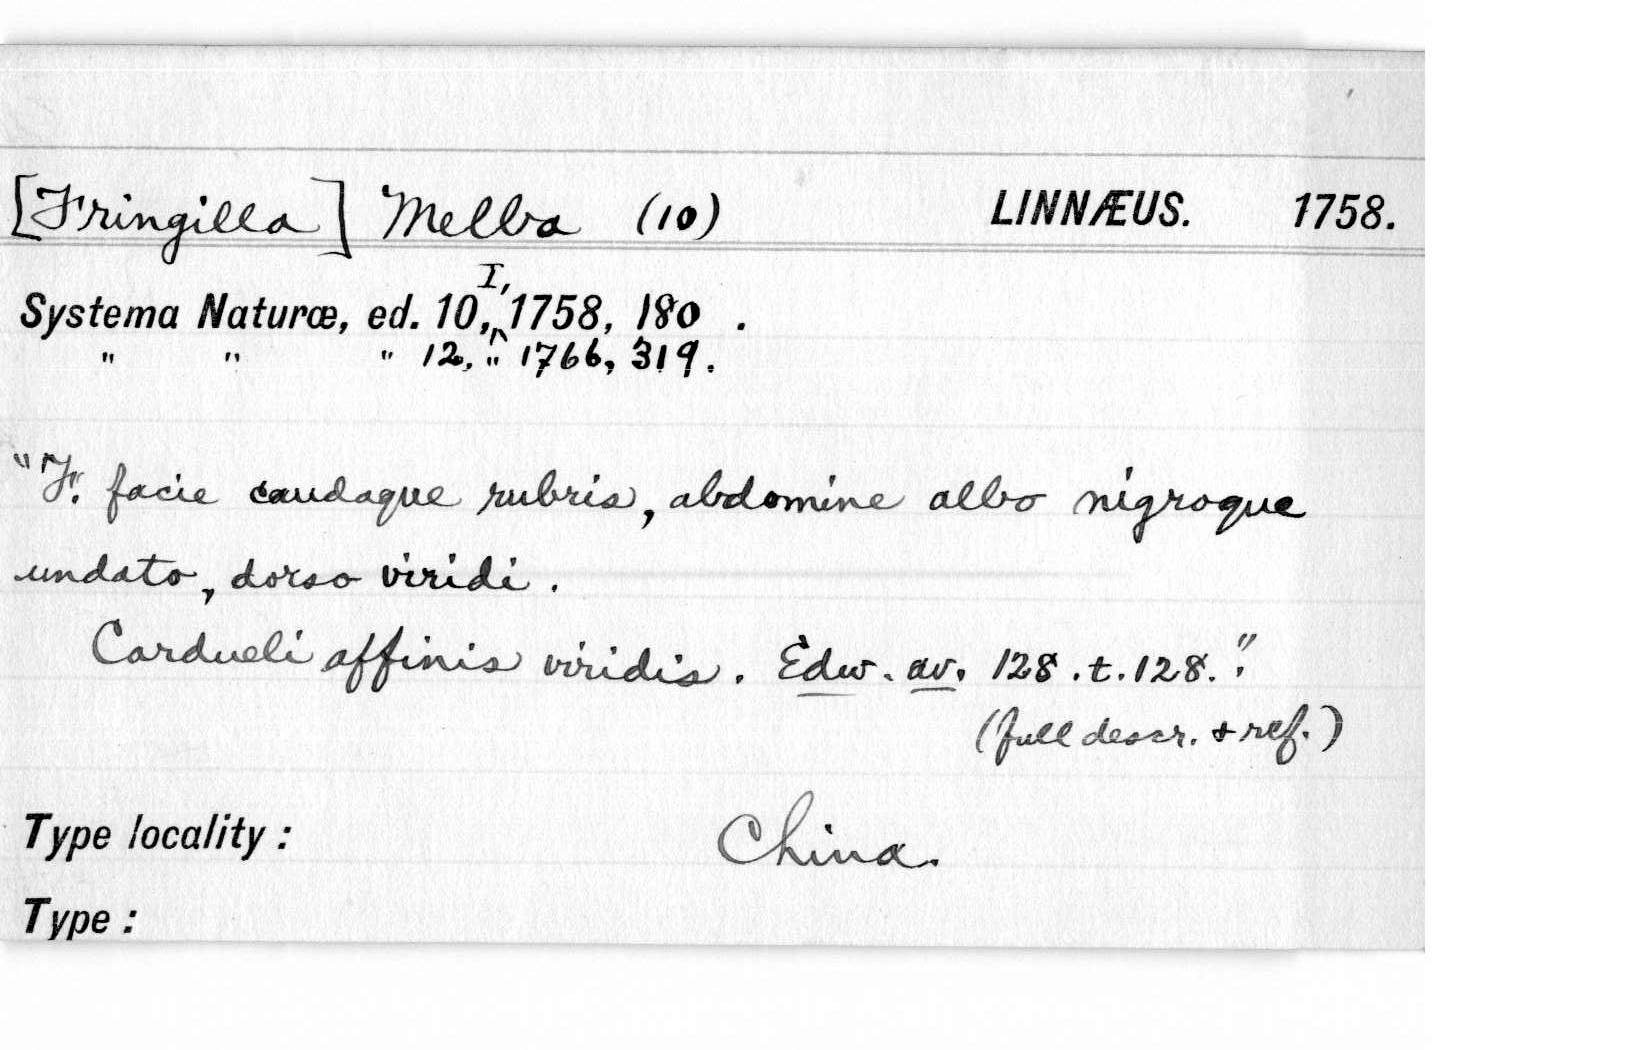 [Fringilla] Melba (10) LINNÆUS. 1758.
Systema Naturæ, ed. 10, I, 1758, 180 .
" " " 12, " 1766, 319.
"F. facie caudaque rubris, abdomine albo nigroque
undato, dorso viridi.
Cardueli affinis viridis. Edw. av. 128. t. 128."
(full descr. & ref.)
Type locality: China.
Type: